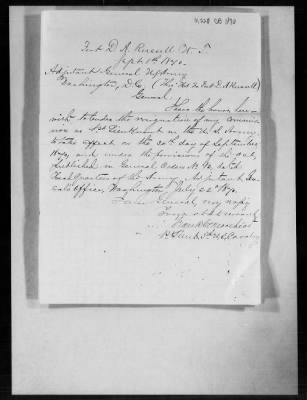 Fort D. A. Russell W. T.
Sept 1st 1870.
Adjutant General US Army
Washington, D.C. (Thro' Hd Qrs Fort D A Russell)
General,
I have the honor here-
with to tender the resignation of my commis-
sion as 1st Lieutenant in the U. S. Army,
to take effect on the 20th day of September
1870, and under the provisions of the act,
published in General Orders No
Head Quarters of the Army, Adjutant Gen-
eral's Office, Washington July 22d 1870.
I am General, very resp'y
Your obt servant
1st Lieut. 5th U.S. Cavalry